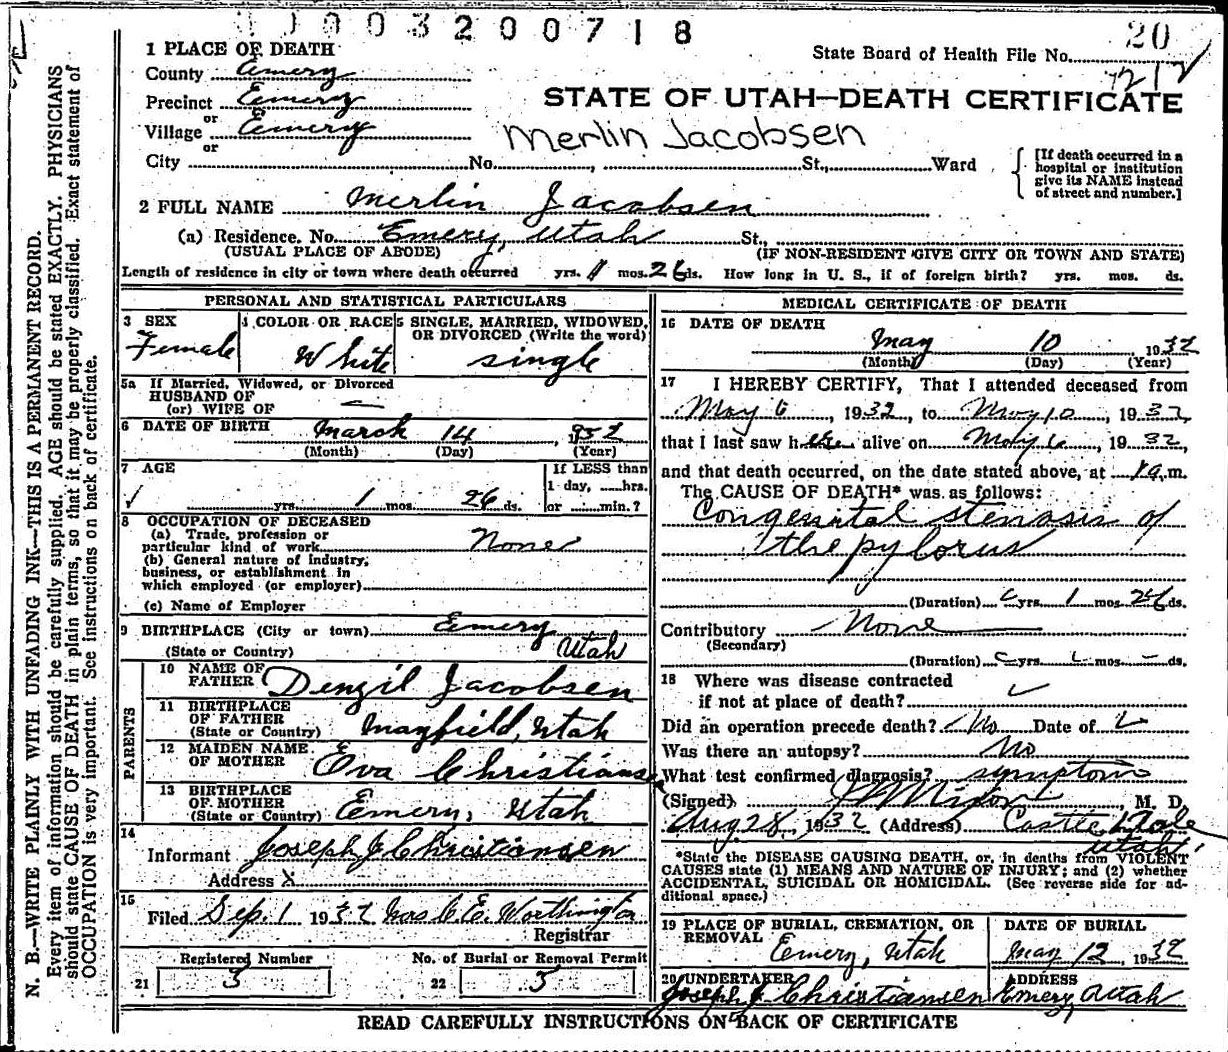 0003200718
20
State Board of Health File No.
212
1 PLACE OF DEATH
County Emery
Precinct Emery
or
Village Emery
or
STATE OF UTAH—DEATH CERTIFICATE
Merlin Jacobsen
City No. , St., Ward
[If death occurred in a
hospital or institution
give its NAME instead
of street and number.]
2 FULL NAME Merlin Jacobsen
(a) Residence, No. Emery, Utah St.,
(USUAL PLACE OF ABODE) (IF NON-RESIDENT GIVE CITY OR TOWN AND STATE)
Length of residence in city or town where death occurred yrs. 1 mos. 26 ds. How long in U. S., if of foreign birth? yrs. mos. ds.
N. B.—WRITE PLAINLY WITH UNFADING INK—THIS IS A PERMANENT RECORD.
Every item of information should be carefully supplied. AGE should be stated EXACTLY. PHYSICIANS
should state CAUSE OF DEATH in plain terms, so that it may be properly classified. Exact statement of
OCCUPATION is very important. See instructions on back of certificate.
PERSONAL AND STATISTICAL PARTICULARS
3 SEX
Female
4 COLOR OR RACE
White
5 SINGLE, MARRIED, WIDOWED,
OR DIVORCED (Write the word)
single
5a If Married, Widowed, or Divorced
HUSBAND OF
(or) WIFE OF —
6 DATE OF BIRTH March 14, 1932
(Month) (Day) (Year)
7 AGE
yrs. 1 mos. 26 ds.
If LESS than
1 day, hrs.
or min.?
8 OCCUPATION OF DECEASED
(a) Trade, profession or
particular kind of work None
(b) General nature of industry,
business, or establishment in
which employed (or employer)
(c) Name of Employer
9 BIRTHPLACE (City or town) Emery
(State or Country) Utah
PARENTS
10 NAME OF
FATHER Denzil Jacobsen
11 BIRTHPLACE
OF FATHER
(State or Country) Mayfield, Utah
12 MAIDEN NAME
OF MOTHER Eva Christiansen
13 BIRTHPLACE
OF MOTHER
(State or Country) Emery, Utah
14
Informant Joseph J Christiansen
Address X
15
Filed Sep. 1 1932 Mrs C. E. Worthington
Registrar
Registered Number
21 3
No. of Burial or Removal Permit
22 3
MEDICAL CERTIFICATE OF DEATH
16 DATE OF DEATH
May 10 1932
(Month) (Day) (Year)
17 I HEREBY CERTIFY, That I attended deceased from
May 6, 1932, to May 10, 1932,
that I last saw her alive on May 6, 1932,
and that death occurred, on the date stated above, at 1 a.m.
The CAUSE OF DEATH* was as follows:
Congenital stenosis of
the pylorus
(Duration) yrs. 1 mos. 26 ds.
Contributory None
(Secondary)
(Duration) yrs. mos. — ds.
18 Where was disease contracted
if not at place of death?
Did an operation precede death? No Date of
Was there an autopsy? No
What test confirmed diagnosis? symptoms
(Signed) , M. D.
Aug 28, 1932 (Address) Castle Dale
Utah
*State the DISEASE CAUSING DEATH, or, in deaths from VIOLENT
CAUSES state (1) MEANS AND NATURE OF INJURY; and (2) whether
ACCIDENTAL, SUICIDAL OR HOMICIDAL. (See reverse side for ad-
ditional space.)
19 PLACE OF BURIAL, CREMATION, OR
REMOVAL
Emery, Utah
DATE OF BURIAL
May 12, 1932
20 UNDERTAKER
Joseph J. Christiansen
ADDRESS
Emery, Utah
READ CAREFULLY INSTRUCTIONS ON BACK OF CERTIFICATE